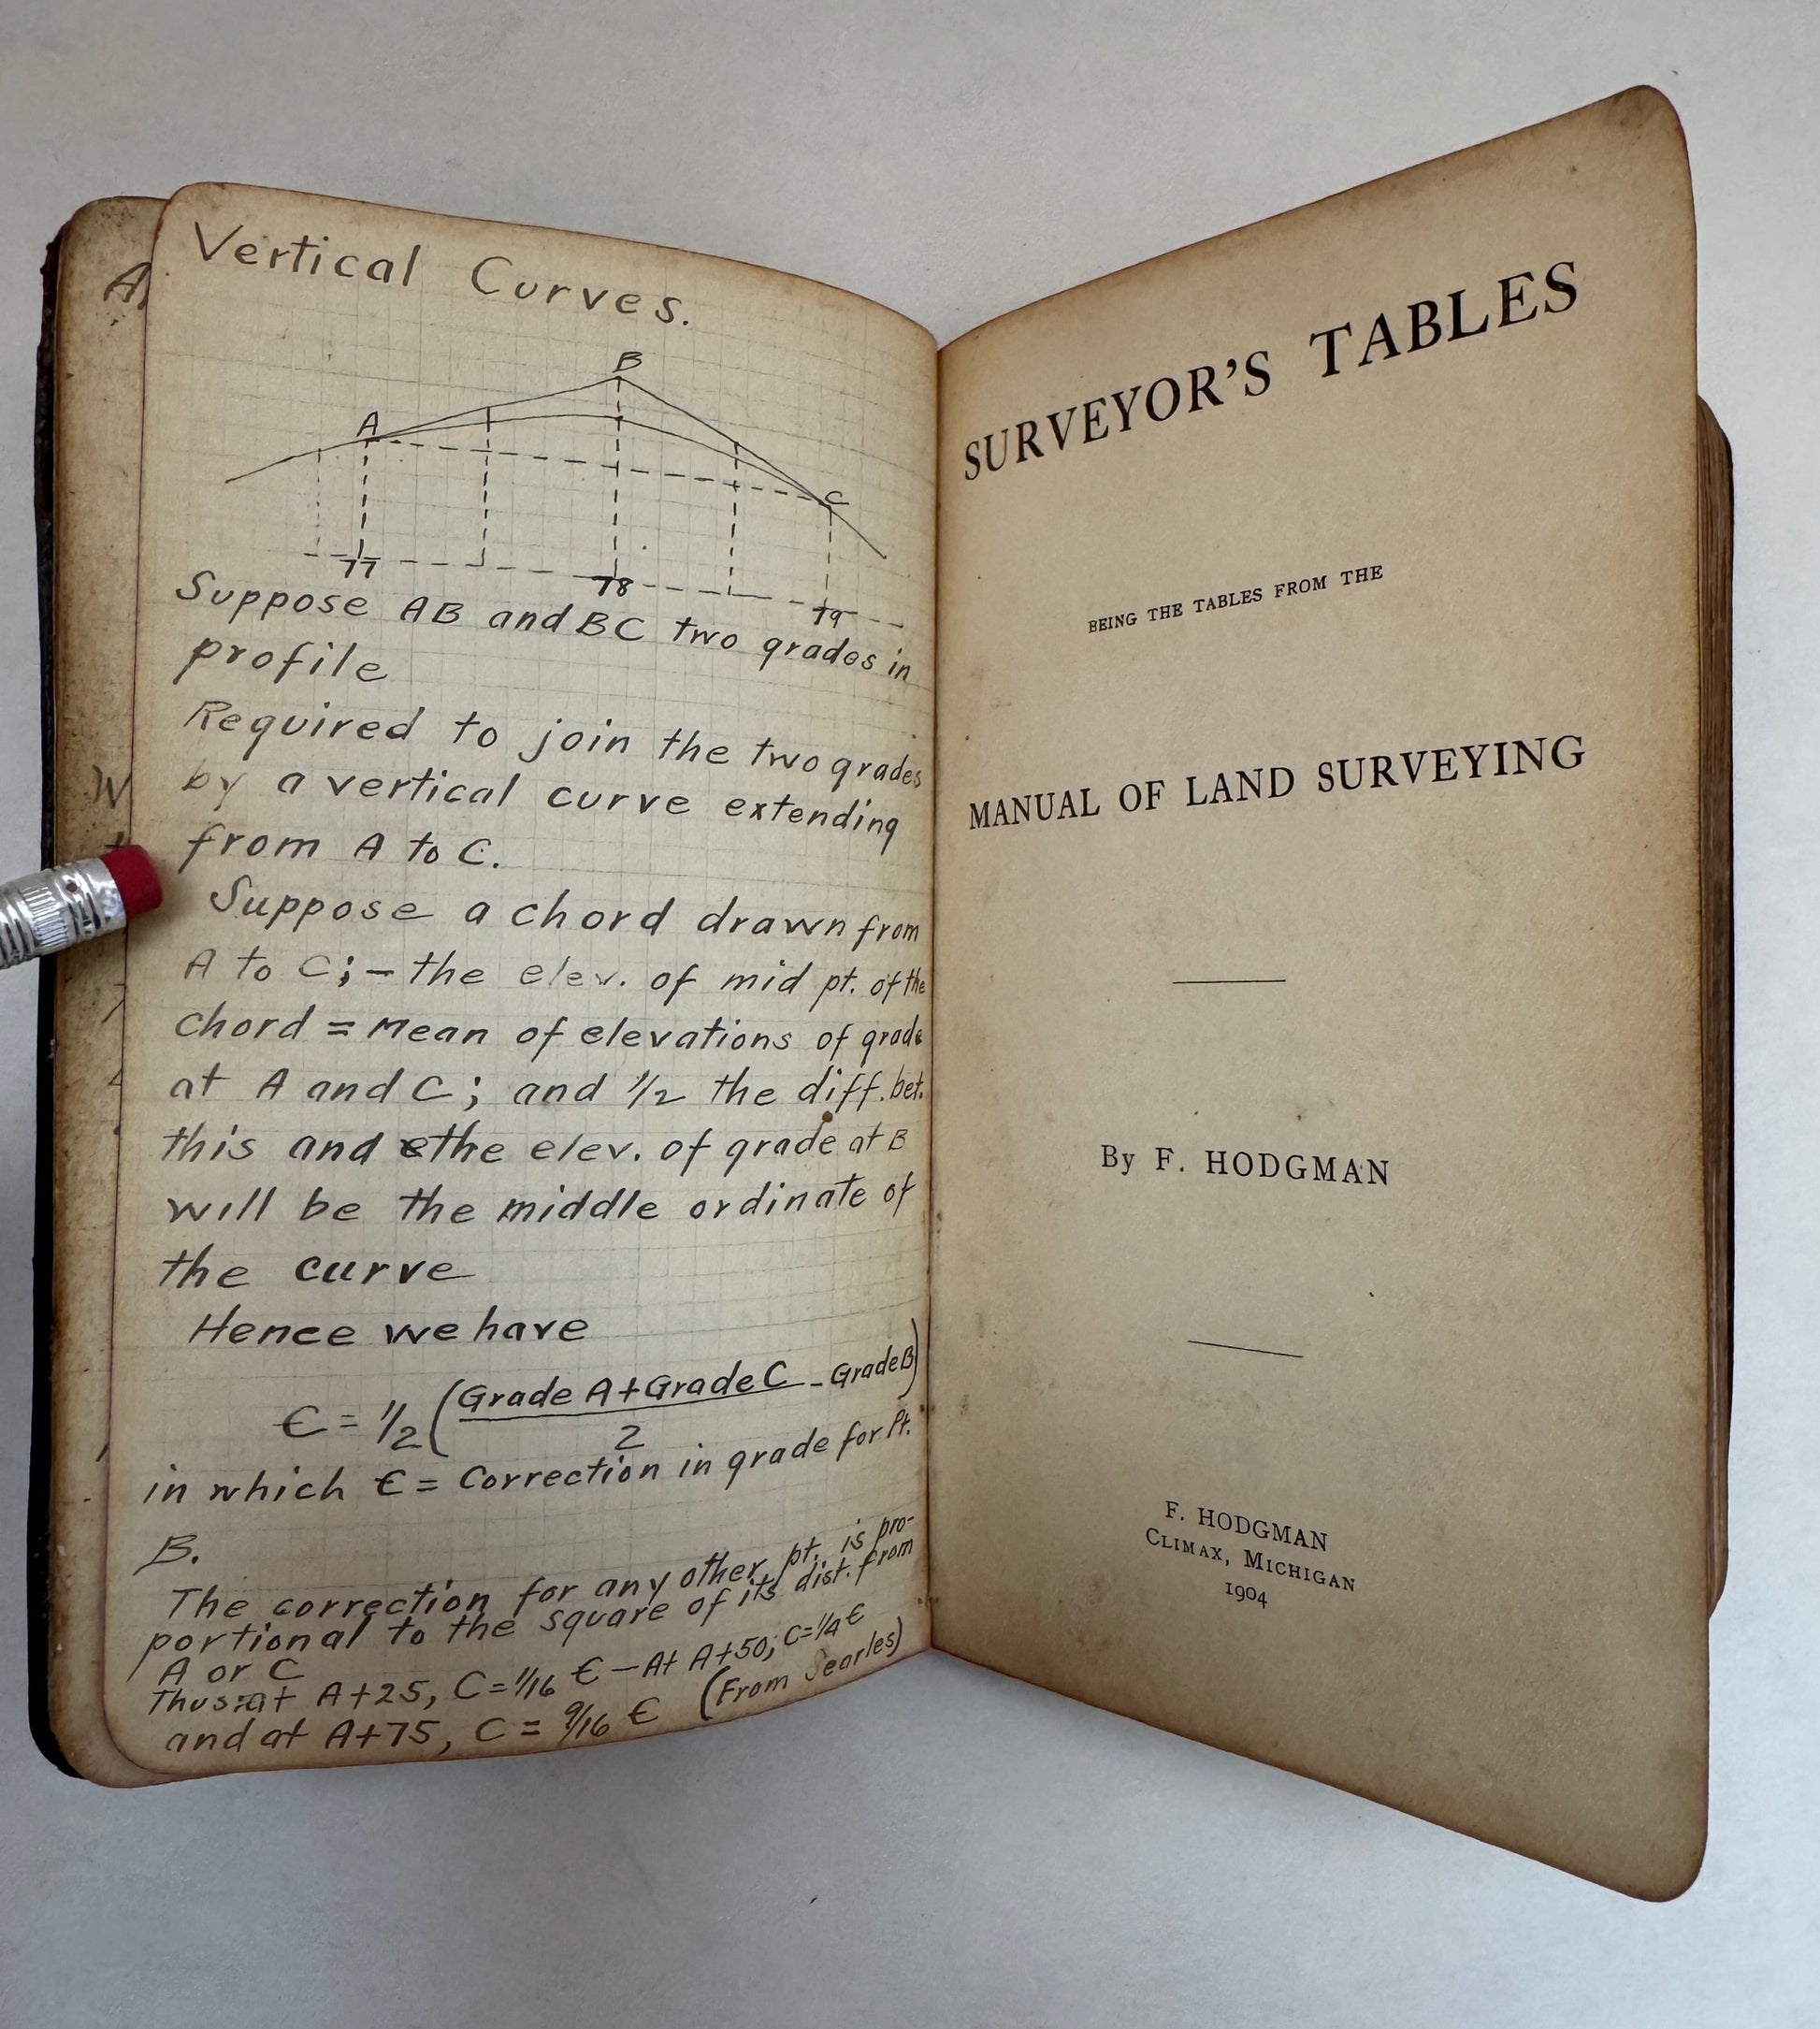 Vertical Curves.
B
A
C
77
78
79
Suppose AB and BC two grades in
profile
Required to join the two grades
by a vertical curve extending
from A to C.
Suppose a chord drawn from
A to C; – the elev. of mid pt. of the
chord = Mean of elevations of grade
at A and C; and 1/2 the diff. bet.
this and the elev. of grade at B
will be the middle ordinate of
the curve
Hence we have
Є = 1/2 (Grade A + Grade C / 2 - Grade B)
in which Є = Correction in grade for Pt.
B.
The correction for any other pt. is pro-
portional to the square of its dist. from
A or C
Thus: at A+25, C = 1/16 Є – At A+50; C = 1/4 Є
and at A+75, C = 9/16 Є (From Searles)
A
W
SURVEYOR'S TABLES
BEING THE TABLES FROM THE
MANUAL OF LAND SURVEYING
By F. HODGMAN
F. HODGMAN
CLIMAX, MICHIGAN
1904